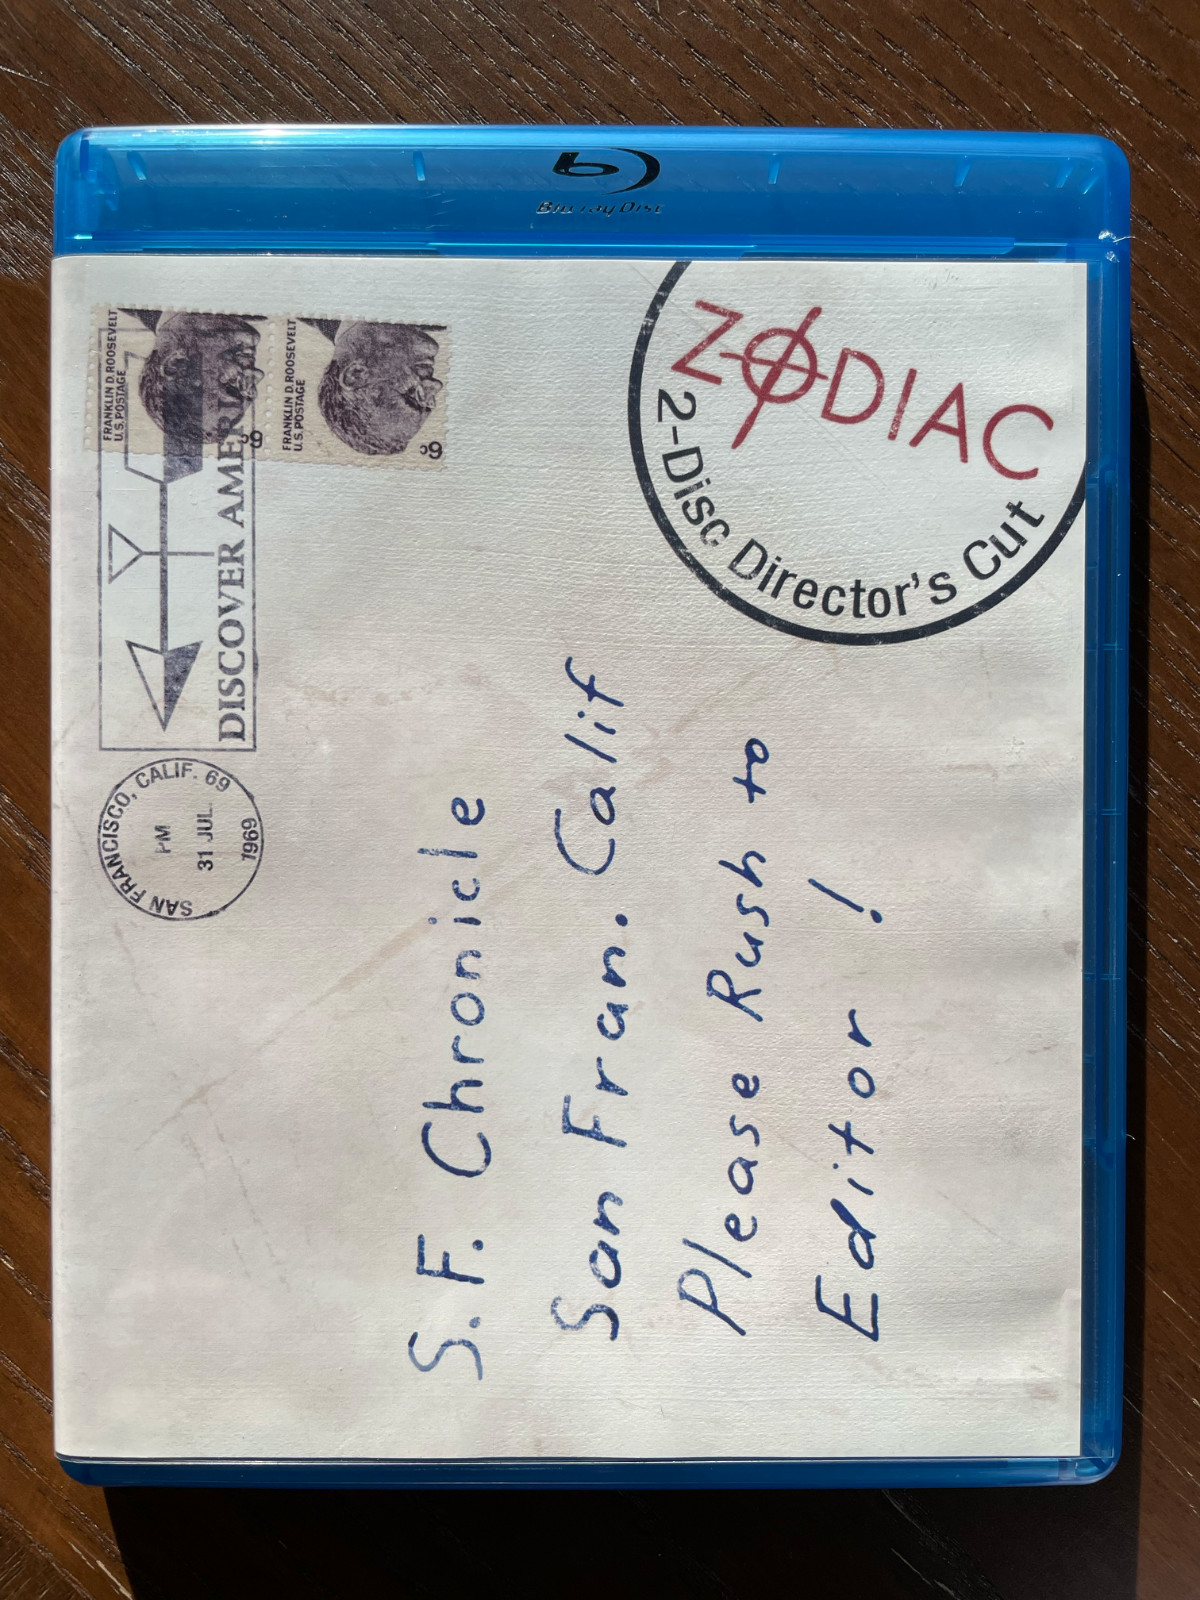 Blu-ray Disc
ZODIAC
2-Disc Director's Cut
FRANKLIN D. ROOSEVELT
U.S. POSTAGE
6¢
FRANKLIN D. ROOSEVELT
U.S. POSTAGE
6¢
DISCOVER AMERICA
SAN FRANCISCO, CALIF. 69
PM
31 JUL.
1969
S.F. Chronicle
San Fran. Calif
Please Rush to
Editor!